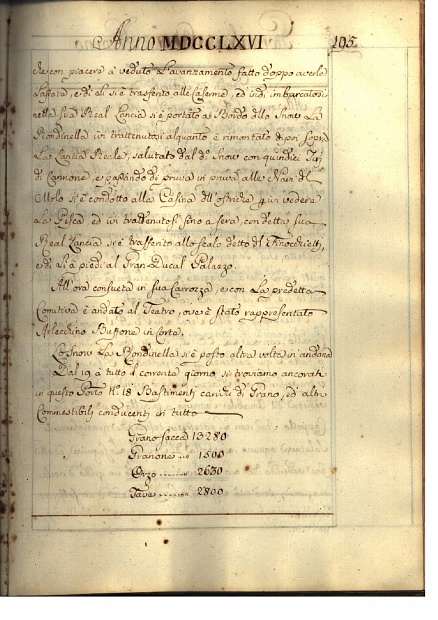 Anno MDCCLXVI 195
che con piacere à veduto L'avanzamento fatto doppo averla
Lassata, e di lì si è trasferito alle Caserme, ed indi imbarcatosi
nella sua Real Lancia si è portato a Bordo dello Snow La
Rondinella ivi trattenutosi alquanto è rimontato di poi sopra
La Lancia Reale, salutato dal do. Snow con quindici Tiri
di Cannone, e passando di priva in priva alle Navi del
Molo si è condotto alla Casina dell'ostriche p. ivi vedere
La Pesca ed ivi trattenutosi sino a sera, con detta sua
Real Lancia si è trasferito allo scalo detto del Finocchietti,
e di lì a piedi al Gran Ducal Palazzo.
All'ora consueta in sua Carrozza, e con La predetta
Comitiva è andato al Teatro, ove è stato rappresentato
Arlecchino Buffone in Corte.
Lo Snow La Rondinella si è posto altra volta in andana
Dal 19 à tutto il corrente giorno si troviamo ancorati
in questo Porto No. 18 Bastimenti carichi di Grano, ed altri
Commestibili conducenti in tutto
Grano sacca 13280
Granone ... 1500
Orzo ... 2630
Fave ... 2800